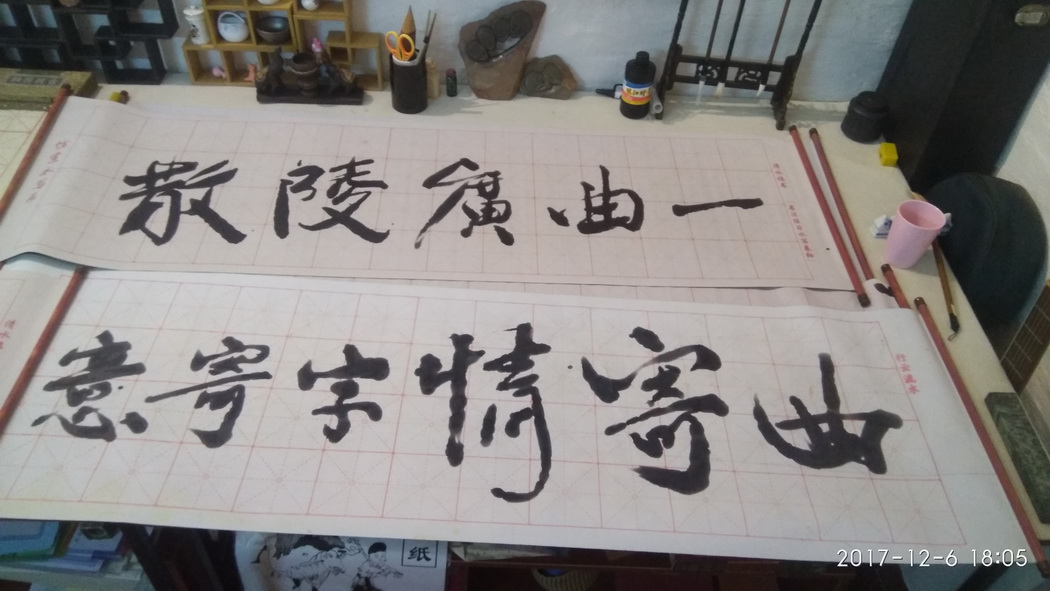 一曲廣陵散
曲寄情字寄意
行云流水
纸
2017-12-6 18:05